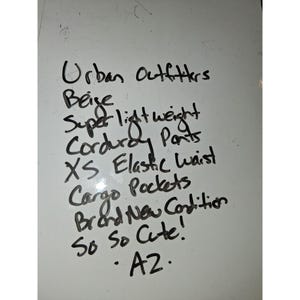 Urban Outfitters
Beige
Super lightweight
Corduroy Pants
XS Elastic Waist
Cargo Pockets
Brand New Condition
So So Cute!
· A2 ·